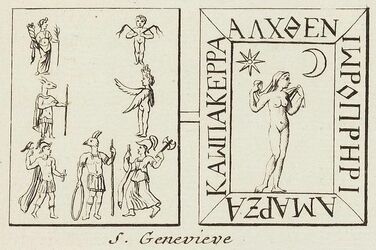 ΑΛΧΘΕΝ
ΙωΡΟΠΡΗΡΙ
ΑΜΑΡΖΑ
ΚΑωΠΑΚΕΡΡΑ
S. Genevieve